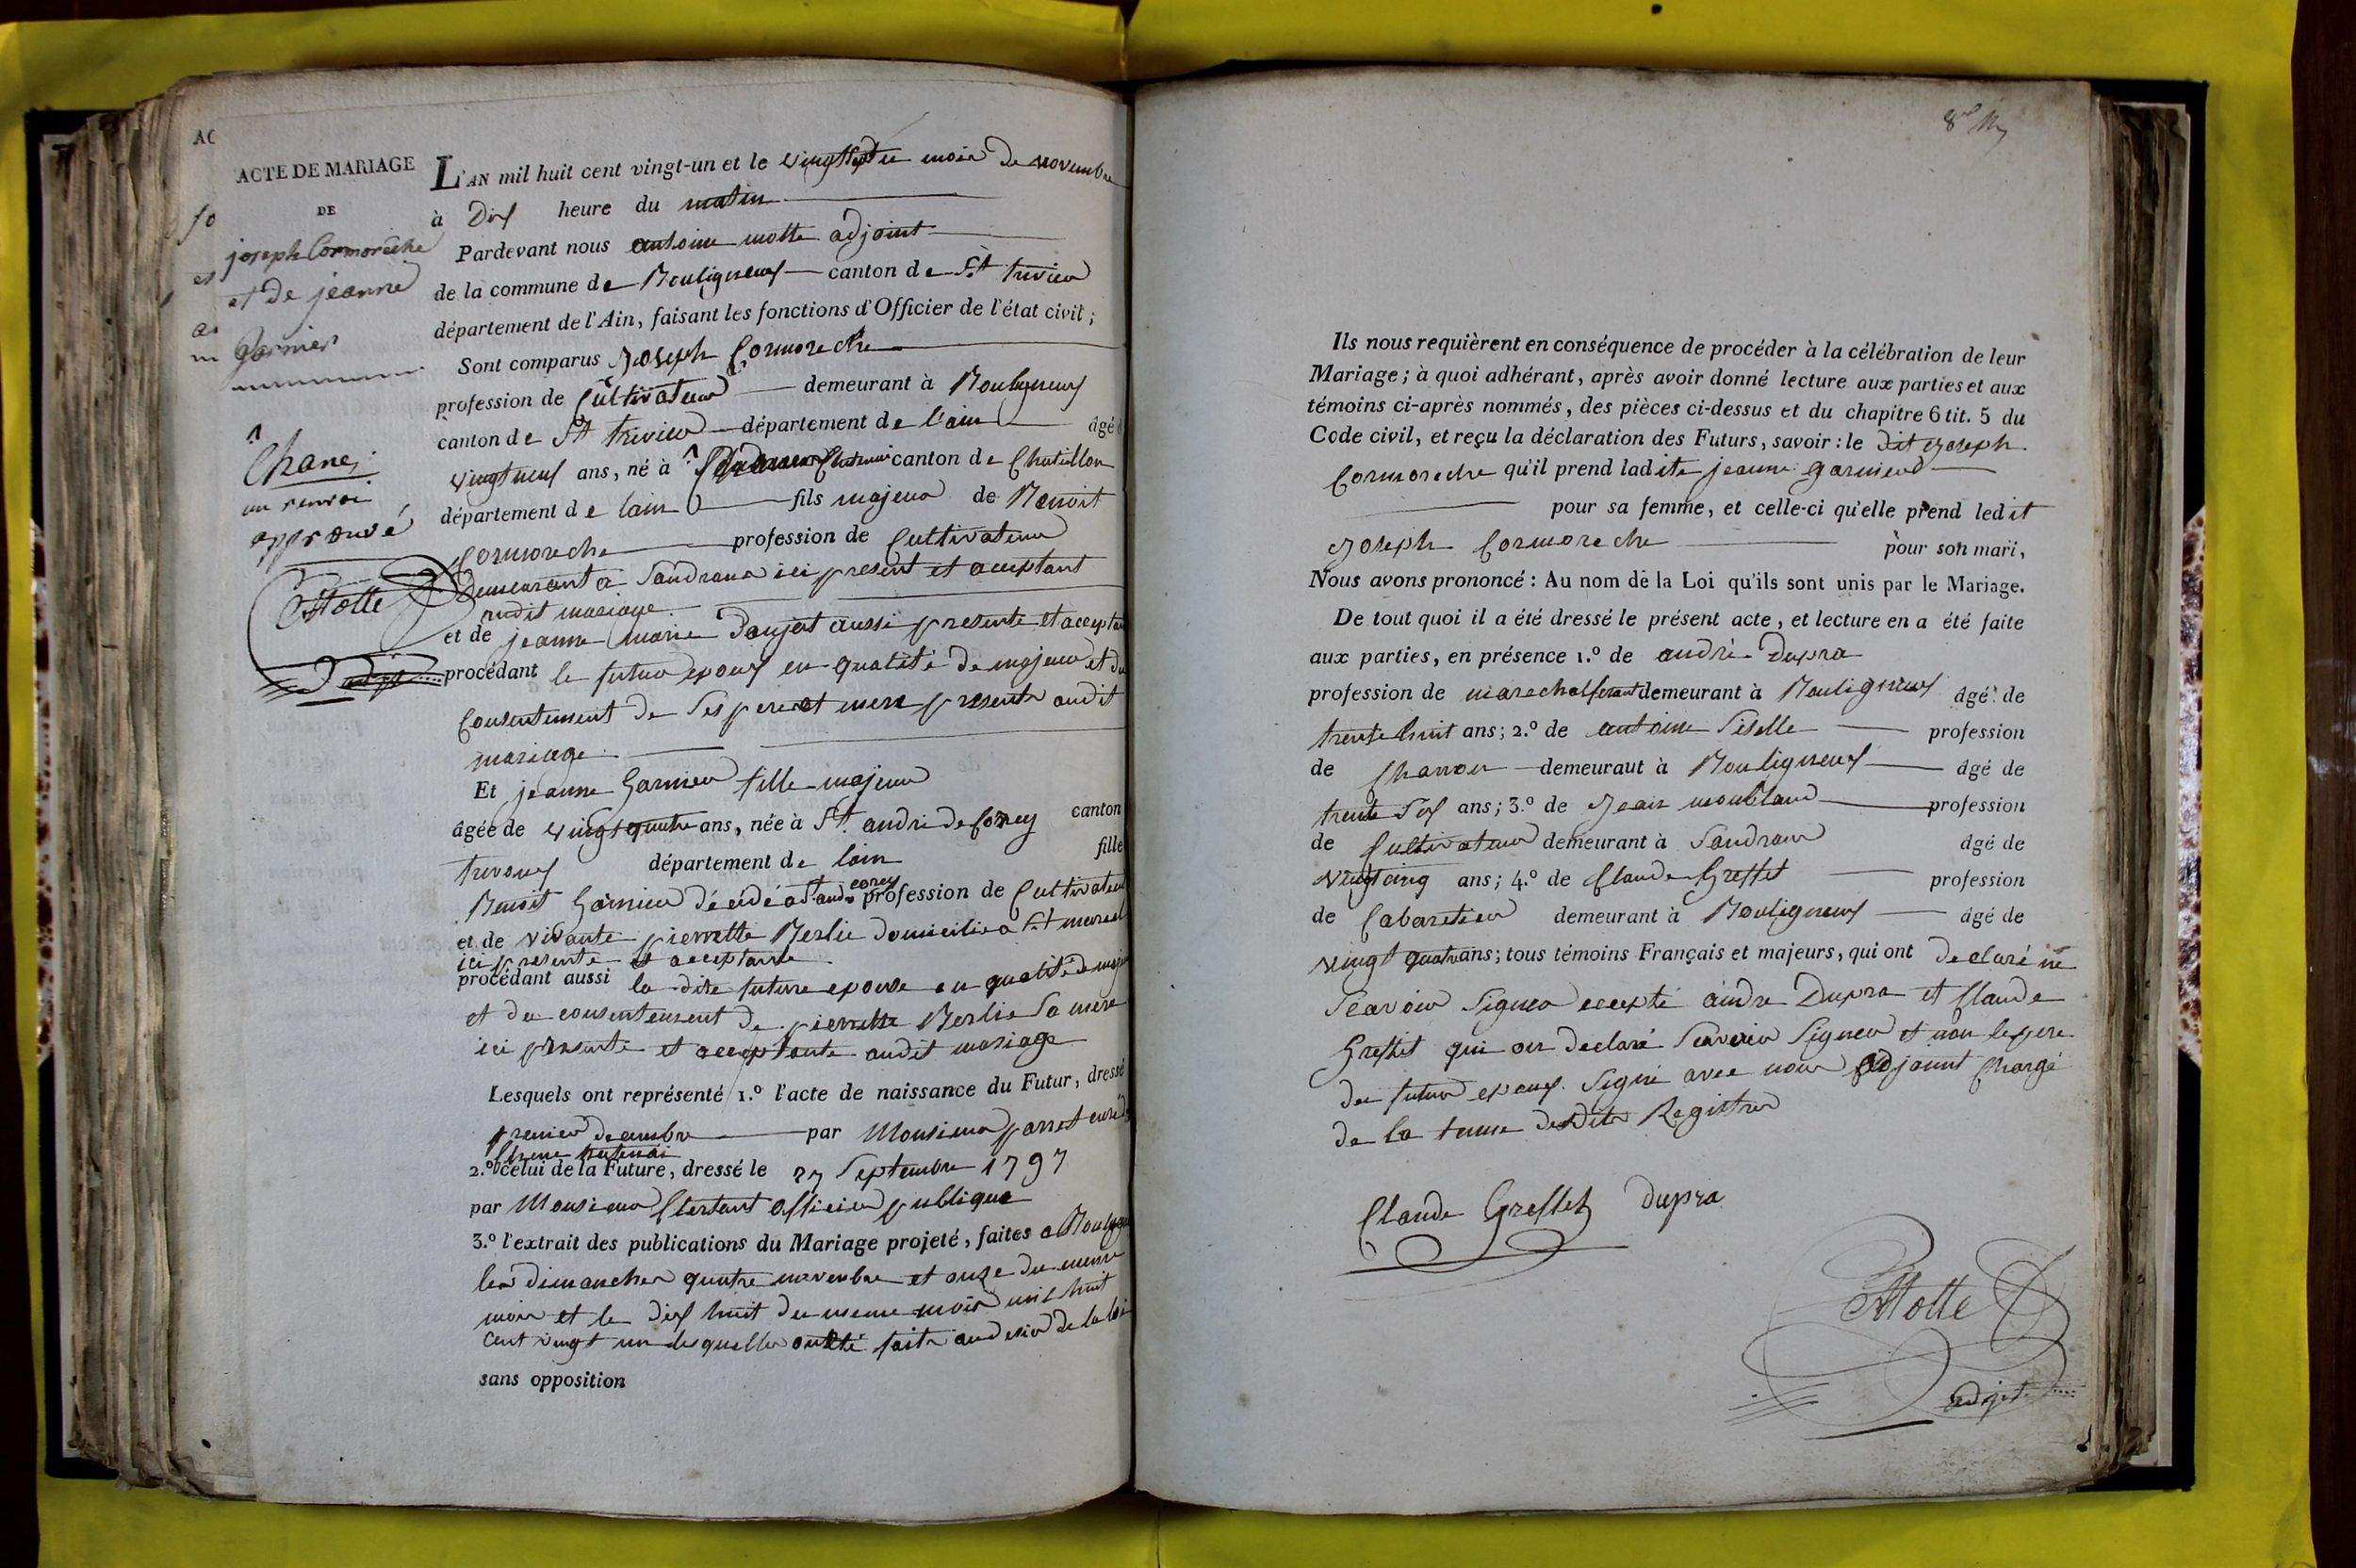 AC
ACTE DE MARIAGE
DE
joseph Cormoreche
et de jeanne
garnier
Chane
un renvoi
approuvé
AMotte
adjt
L'AN mil huit cent vingt-un et le vingt sept du mois de novembre
à Dix heure du matin
Pardevant nous antoine motte adjoint
de la commune de Bouligneux canton de St trivier
département de l'Ain, faisant les fonctions d'Officier de l'état civil;
Sont comparus Joseph Cormoreche
profession de Cultivateur demeurant à Bouligneux
canton de St trivier département de l'ain âgé d
vingt neuf ans, né à canton de Chatillon
département de lain fils majeur de Benoit
Cormoreche profession de Cultivateur
demeurant a Sandrans ici present et aceptant
audit mariage
et de jeanne marie Daujat aussi presente et acceptan
procédant le futur epoux en qualité de majeur et du
Consentement de Ses pere et mere presents audit
mariage
Et jeanne Garnier fille majeur
âgée de vingt quatre ans, née à St. andré de Corcy canton
trevoux département de lain fille
Benoit Garnier décédé a St. andr corcy profession de Cultivateur
et de vivante pierrette Berlie domiciliée a St marcel
ici presente et acceptante
procédant aussi la dite future epouse en qualité de maje
et du consentement de pierrette Berlie Sa mere
ici presente et acceptante audit mariage
Lesquels ont représenté 1.º l'acte de naissance du Futur, dressé
premier decembre par Monsieur parret curé d
2.º celui de la Future, dressé le 27 Septembre 1797
par Monsieur officier publique
3.º l'extrait des publications du Mariage projeté, faites a Boulign
les dimanches quatre novembre et onze du meme
mois et le dix huit du meme mois mil huit
cent vingt un lesquelles ont été faite au desir de la loi
sans opposition
Ils nous requièrent en conséquence de procéder à la célébration de leur
Mariage; à quoi adhérant, après avoir donné lecture aux parties et aux
témoins ci-après nommés, des pièces ci-dessus et du chapitre 6 tit. 5 du
Code civil, et reçu la déclaration des Futurs, savoir: le dit Joseph
Cormoreche qu'il prend ladite jeanne garnier
pour sa femme, et celle-ci qu'elle prend ledit
Joseph Cormoreche pour son mari,
Nous avons prononcé: Au nom de la Loi qu'ils sont unis par le Mariage.
De tout quoi il a été dressé le présent acte, et lecture en a été faite
aux parties, en présence 1.º de andré Dupra
profession de marechal ferant demeurant à Bouligneux âgé de
trente huit ans; 2.º de antoine Sibelle profession
de Charron demeuraut à Bouligneux âgé de
trente Six ans; 3.º de Jean profession
de Cultivateur demeurant à Sandrans âgé de
vingt cinq ans; 4.º de Claude Greffet profession
de Cabaretier demeurant à Bouligneux âgé de
vingt quatre ans; tous témoins Français et majeurs, qui ont declaré ne
Scavoir Signer excepté andre Dupra et Claude
Greffet qui on declaré Scavoir Signer et non le pere
du futur epoux. Signé avec nous adjoint Chargé
de la tenue desdits Registres
Claude Greffet Dupra
AMotte
adjt